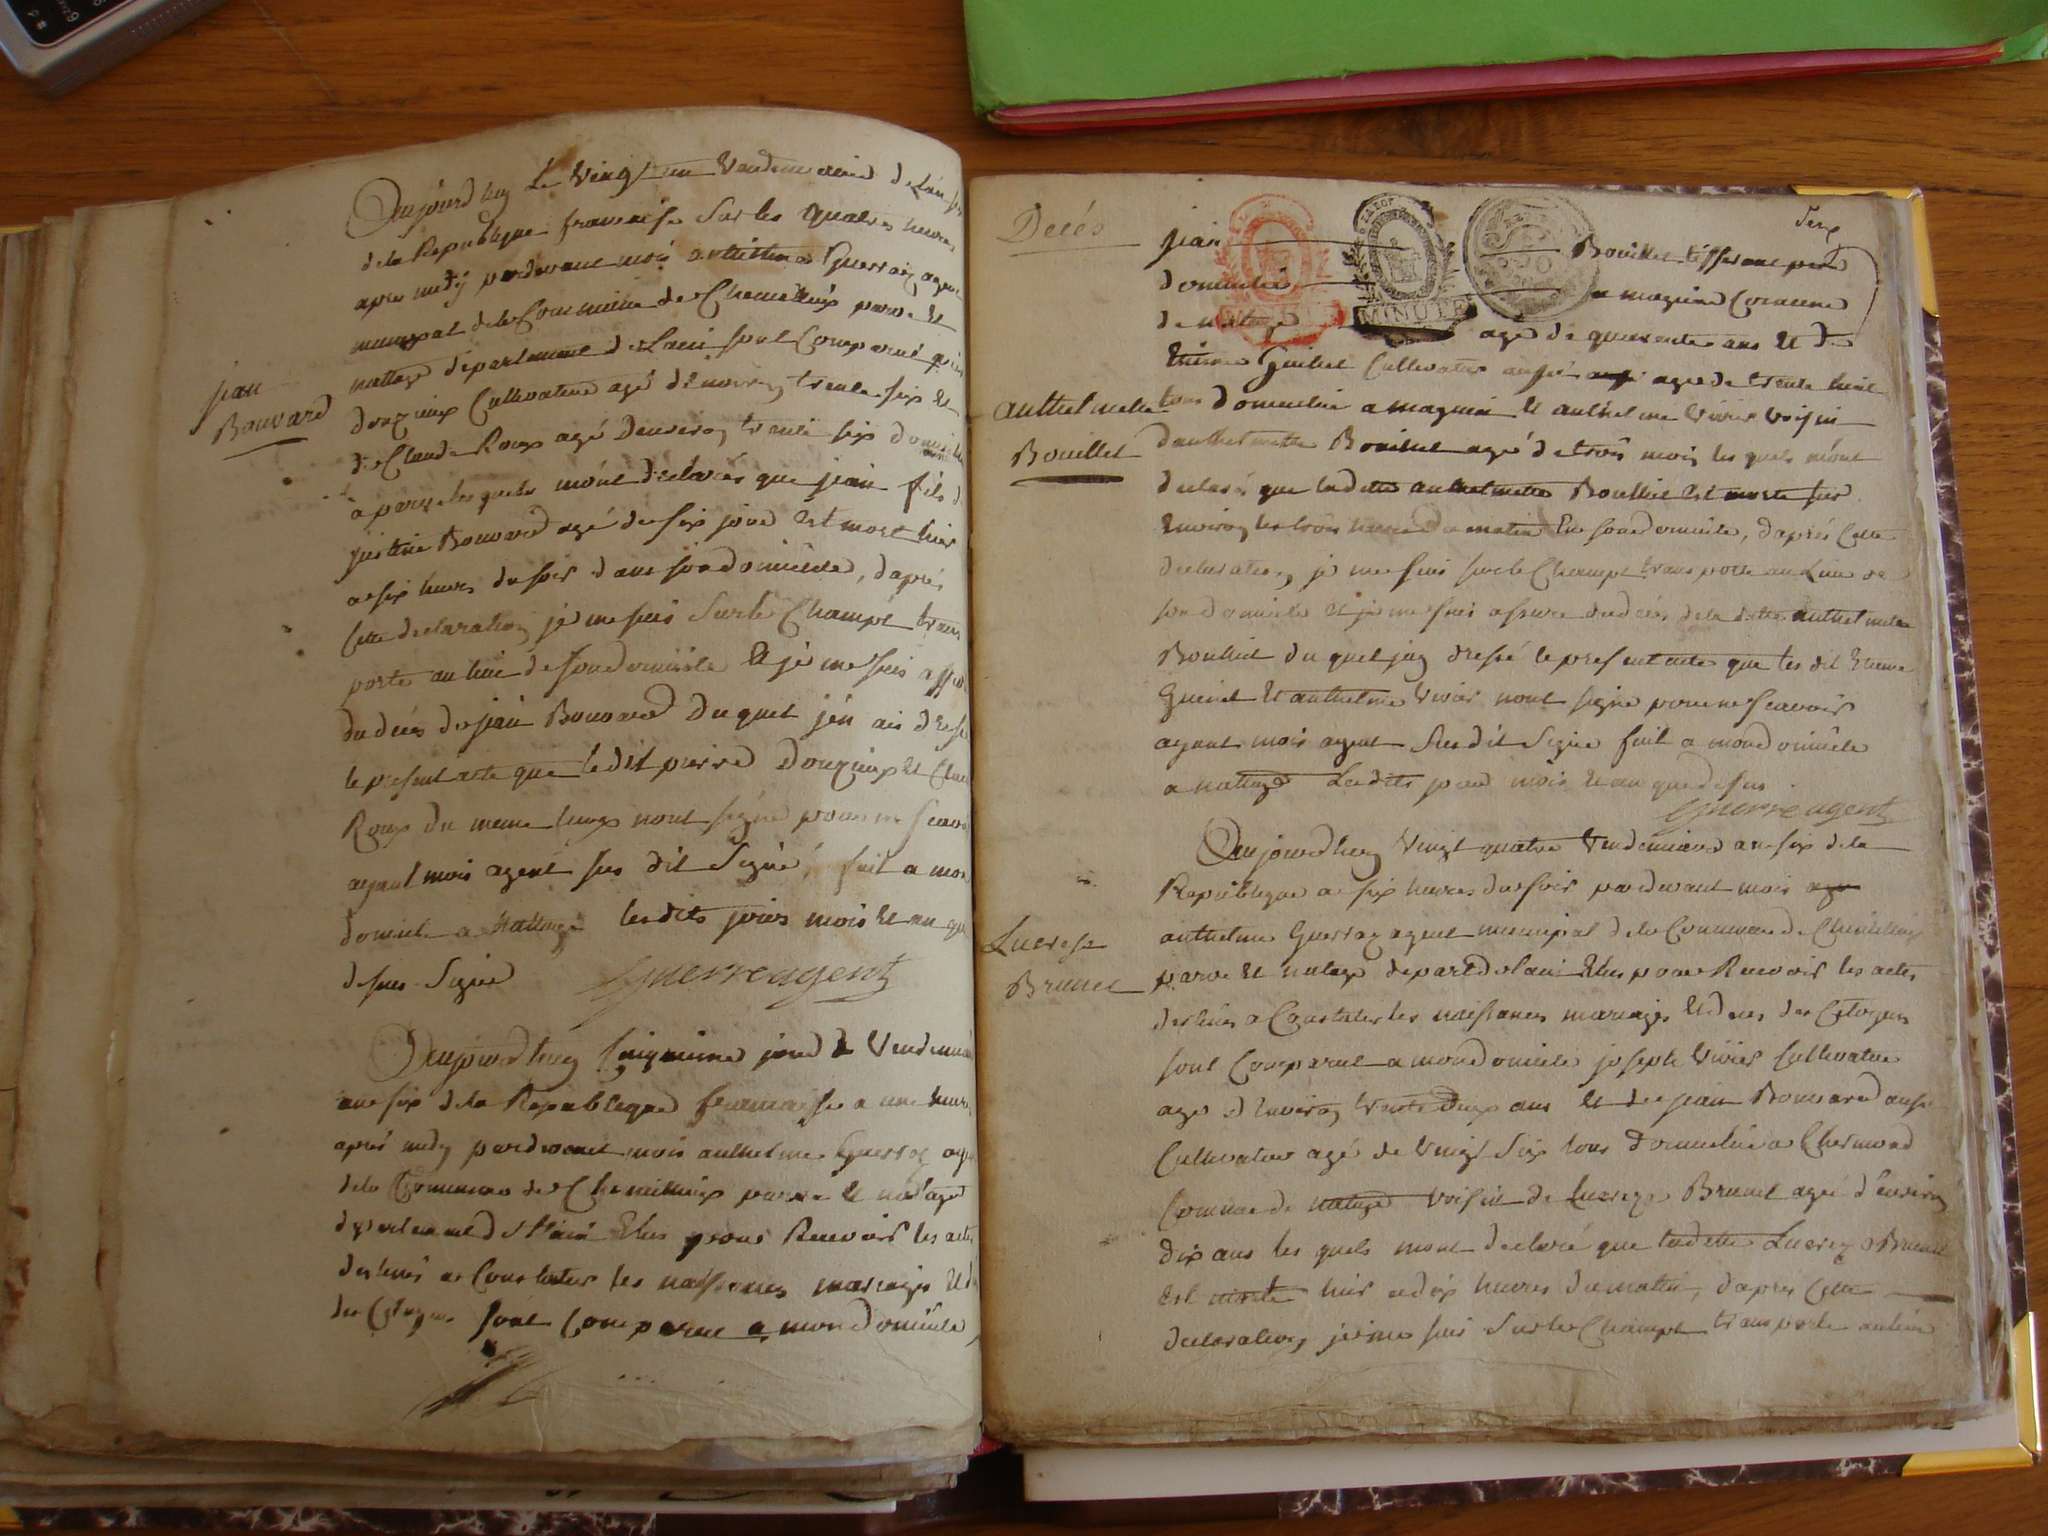 Aujourdhuy Le Vingt un Vendemiaire de Lan six
de la Republique francaise Sur les quatres heures
apres midy pardevant moy anthelme Guerraz agent
municipal de la Commune de Chemillieux parve Et
nattage departement de Lain sont Comparut
Cultivateur agé denviron trente six Et
de Claude Roux agé denviron trente six
a parve les quels mont declarés que jean fils
justine Bouvard agé de six jour Est mort hier
a six heures du soir dans son domicile, daprés
Cette declaration je me suis Sur le Champt trans
porte au lieu de son domicile Et je me suis assuré
du décés de jean Bouvard Du quel jen ais dressé
le present acte que le dit pierre Et Claude
Roux du meme lieux nont signé pour ne Scavoir
ayant mois agent sus dit Signé, fait a mon
domicile a Nattage les dits jours mois Et an que
desus Signé
Guerre agent
jean
Bouvard
Aujourdhuy jour de Vendemiaire
an six de la Republique francaise a une heure
aprés midy pardevant mois anthelme Guerraz agent
de la Commune de Chemillieux parve Et nattage
departement de Lain Elus pour Recevoir les actes
destinés a Constater les naissances mariages Et
des Citoyens sont Comparut a mon domicile
Decés
jean Bouillet tisserant
domicilié a magnieu Commune
de nattage agé de quarente ans Et
Cultivateur aussi agé de trente huit
tous domicilié a magnieu Et anthelme Vivier Voisin
danthelmette Bouillet agé de trois mois les quels mont
declarés que ladette anthelmette Bouillet Est morte hier
Environ les trois heures du matin En son domicile, daprés Cette
declaration, je me suis sur le Champt transporte au Lieu de
son domicile Et je me suis assure du décés de la dette anthelmette
Bouillet du quel jay dressé le present acte que les dit Etienne
Et anthelme Vivier nont signé pour ne scavoir
ayant mois agent Sus dit Signé fait a mon domicile
a nattage Les dits jour mois Et an que desus
Guerre agent
anthelmette
Bouillet
Aujourdhuy Vingt quatre Vendemiaire an six de la
Republique a six heures du soir pardevant mois
anthelme Guerraz agent municipal de la Commune de Chemillieux
parve Et natage depart de lain Elus pour Recevoir les actes
destinés a Constater les naissances mariages Et décés des Citoyens
sont Comparut a mon domicile joseph Vivier Cultivateur
agé d Environ trente deux ans Et de jean Bouvard aussi
Cultivateur agé de Vingt Six tous domicilié a Chermond
Commune de natage voisin de Lucreze Brunet ageé d'environ
dix ans les quels mont declaré que ladette Lucreze Brunet
Est morte hier a dix heures du matin, daprés Cette
declaration, je me suis Sur le Champt transporte au lieu
Lucrese
Brunet
MINUTE